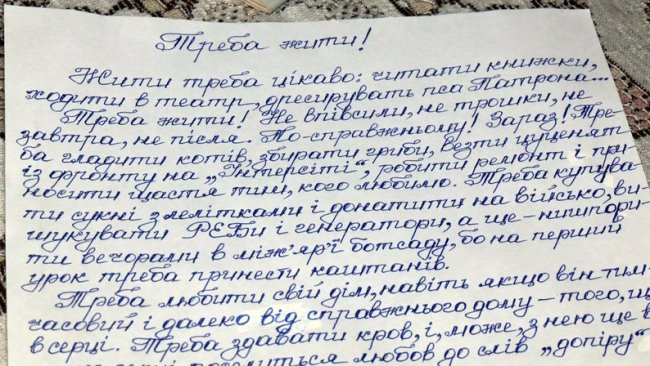 Треба жити!
Жити треба цікаво: читати книжки,
ходити в театр, дресирувать пса Патрона...
Треба жити! Не впівсили, не трошки, не
завтра, не після. По-справжньому! Зараз! Тре-
ба гладити котів, збирати гриби, везти цуценят
із фронту на „Інтерсіті", робити ремонт і при-
носити щастя тим, кого любимо. Треба купува-
ти сукні з лелітками і донатити на військо, ви-
шукувати РЕБи і генератори, а ще – нишпори-
ти вечорами в між'ярї ботсаду, бо на перший
урок треба принести каштанів.
Треба любити свій дім, навіть якщо він тим-
часовий і далеко від справжнього дому – того, що
в серці. Треба здавати кров, і, може, з нею ще в
любов до слів „допіру"